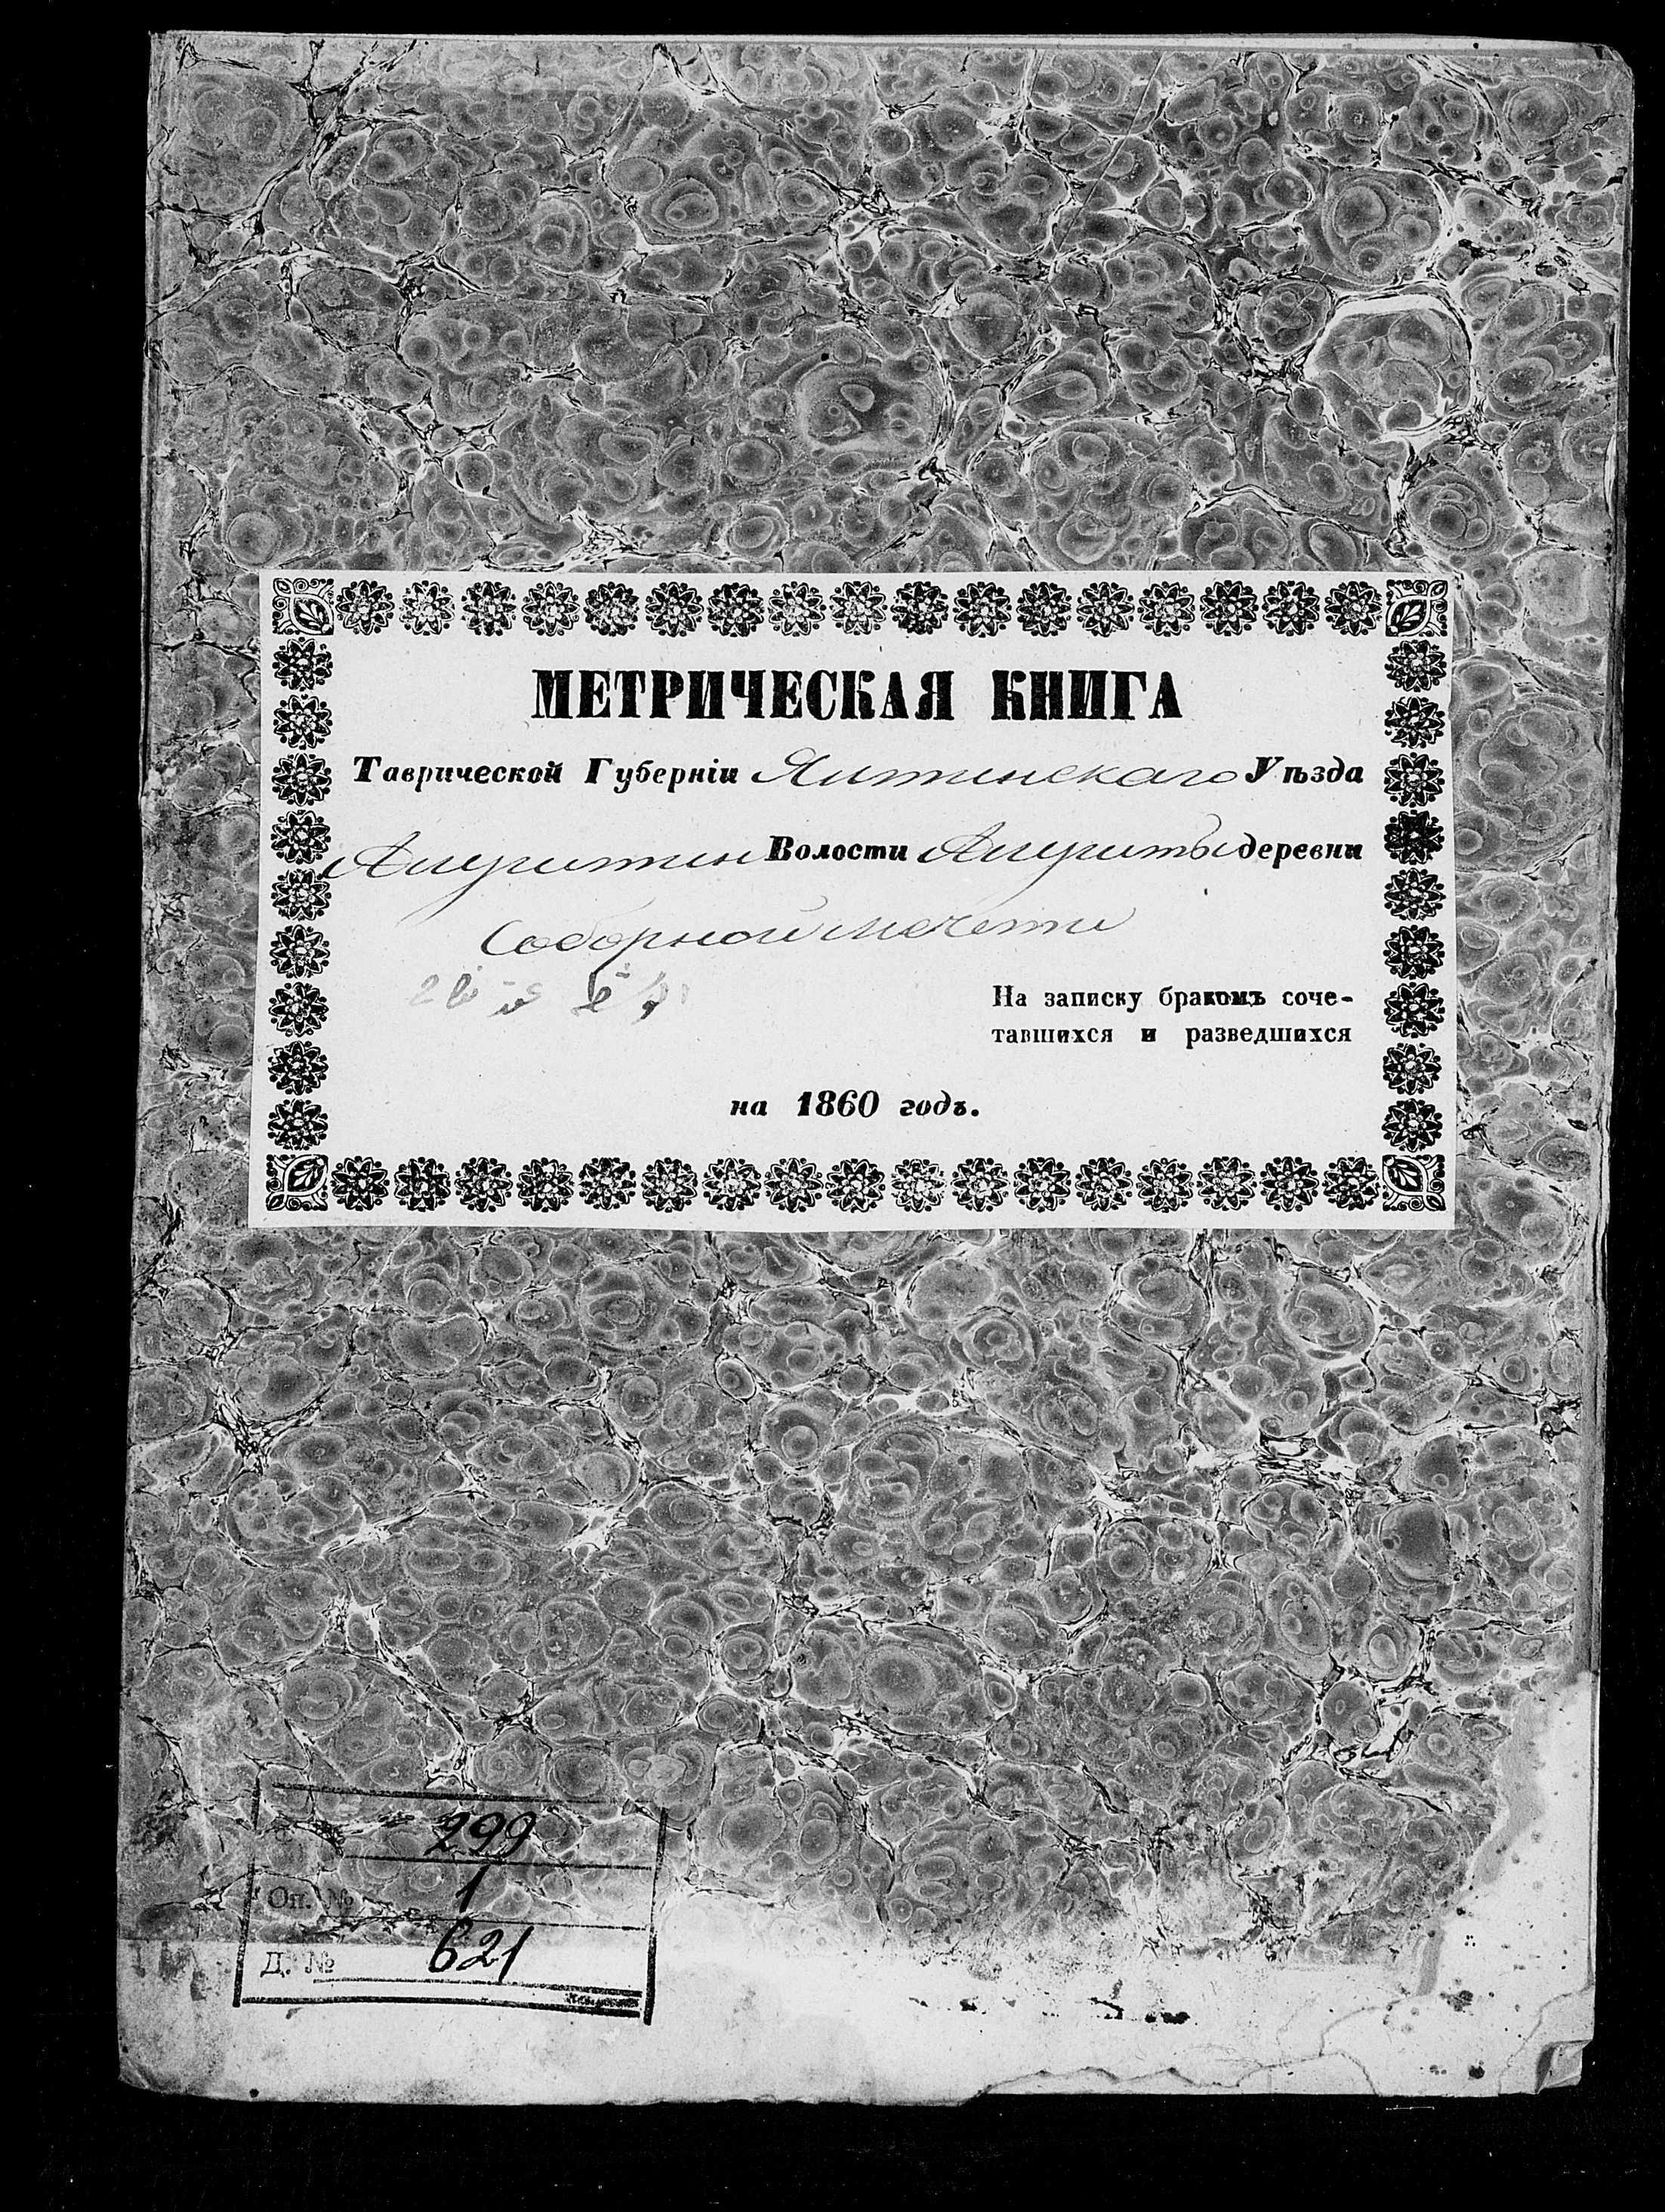 МЕТРИЧЕСКАЯ КНИГА
Таврической Губерніи Ялтинскаго Уѣзда
Алуштин Волости Алушты деревни
Соборной мечети
На записку бракомъ соче-
тавшихся и разведшихся
на 1860 годъ.
299
Оп. № 1
Д. № 621